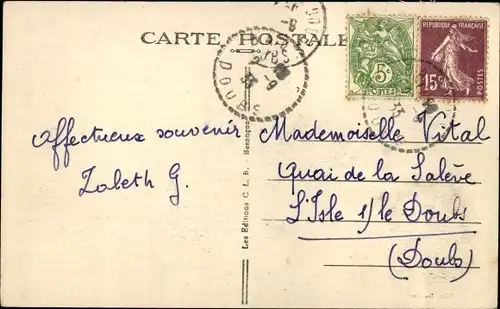 CARTE POSTALE
DOUBS
RÉPUBLIQUE FRANÇAISE
5c
POSTES
15c
POSTES
Affectueux souvenir
Zabeth G.
Les Editions C. L. B. Besançon
Mademoiselle Vital
Quai de la Salève
L'Isle s/le Doubs
(Doubs)